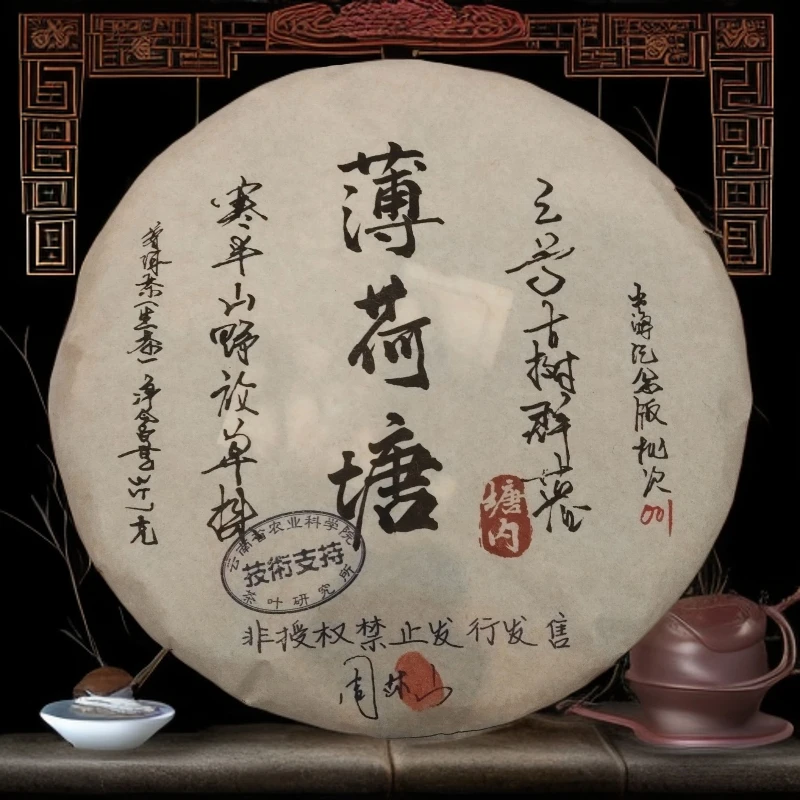 海纪念版批次001
古树群落
塘内
薄荷塘
山野放单株
普洱茶(生茶) 净含量
云南省农业科学院
技術支持
茶叶研究所
非授权禁止发行发售